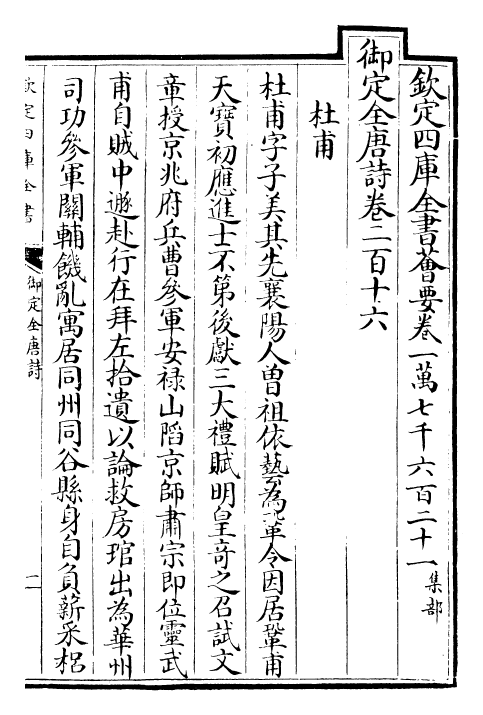 欽定四庫全書薈要卷一萬七千六百二十一 集部
御定全唐詩卷二百十六
杜甫
杜甫字子美其先襄陽人曽祖依藝為鞏令因居鞏甫
天寶初應進士不第後獻三大禮賦明皇竒之召試文
章授京兆府兵曹參軍安禄山䧟京師肅宗即位靈武
甫自賊中遯赴行在拜左拾遺以論救房琯出為華州
司功參軍關輔饑亂寓居同州同谷縣身自負薪采梠
欽定四庫全書
御定全唐詩
一